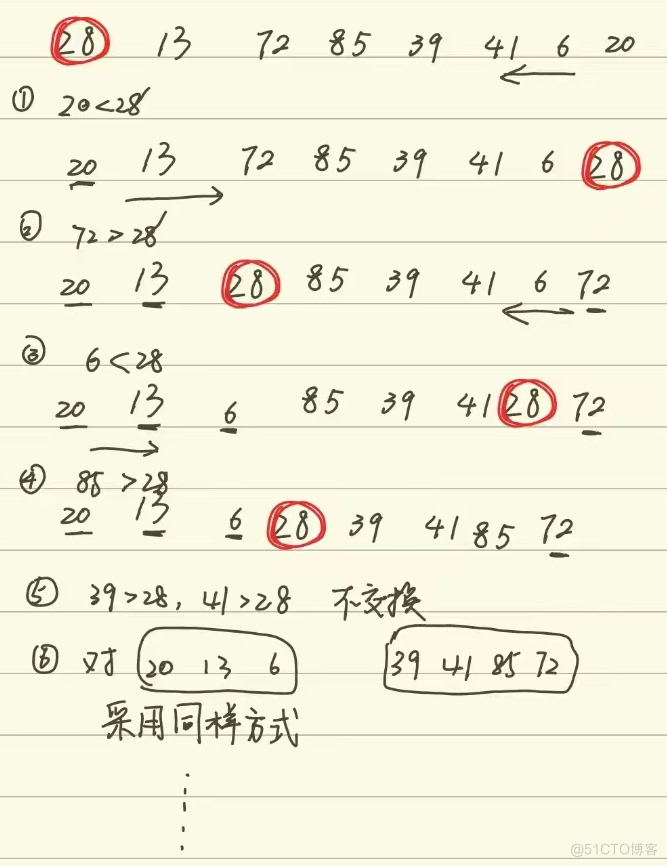 28 13 72 85 39 41 6 20
① 20<28
20 13 72 85 39 41 6 28
② 72>28
20 13 28 85 39 41 6 72
③ 6<28
20 13 6 85 39 41 28 72
④ 85>28
20 13 6 28 39 41 85 72
⑤ 39>28, 41>28 不交换
⑥ 对 20 13 6 39 41 85 72
采用同样方式
@51CTO博客